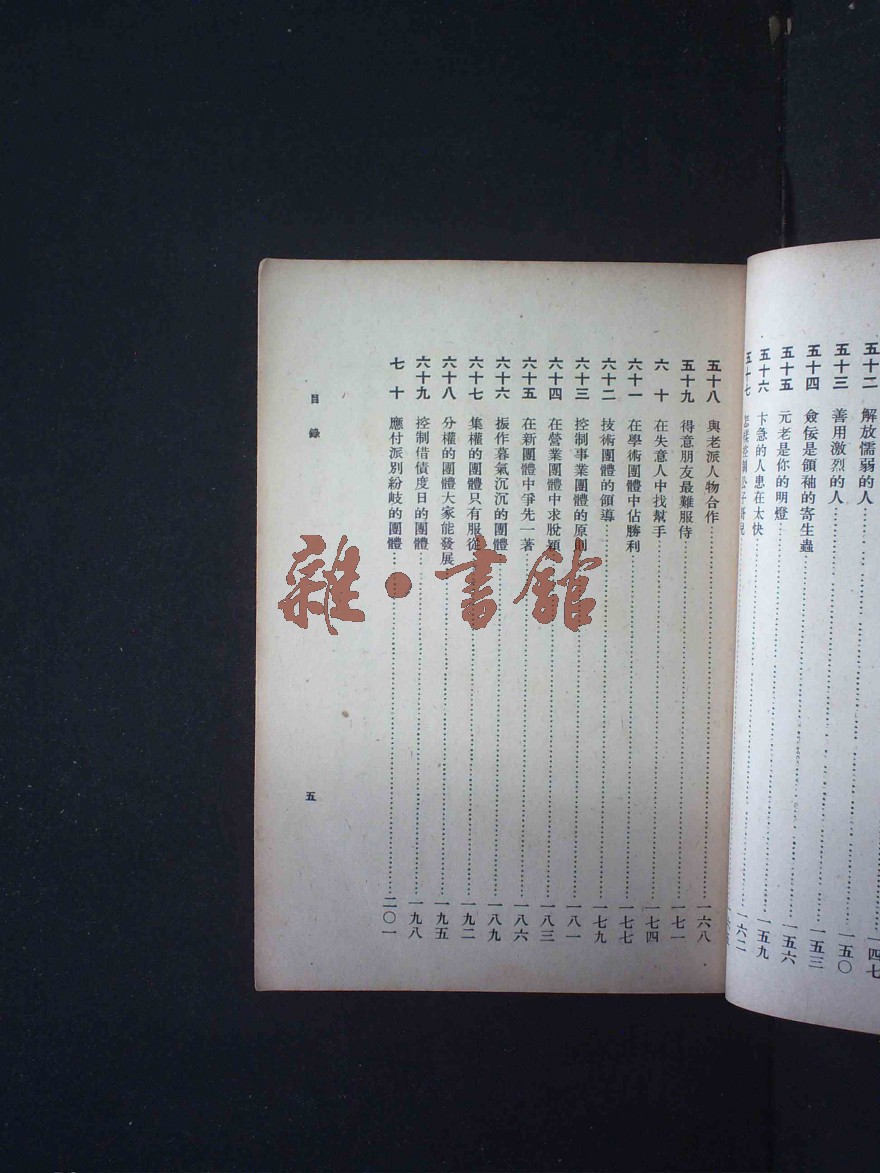 五十二 解放懦弱的人……一四七
五十三 善用激烈的人……一五〇
五十四 僉佞是領袖的寄生蟲……一五三
五十五 元老是你的明燈……一五六
五十六 卞急的人患在太快……一五九
五十七 公子……一六二
五十八 與老派人物合作……一六八
五十九 得意朋友最難服侍……一七一
六十 在失意人中找幫手……一七四
六十一 在學術團體中佔勝利……一七七
六十二 技術團體的領導……一七九
六十三 控制事業團體的原則……一八一
六十四 在營業團體中求脫穎……一八三
六十五 在新團體中爭先一著……一八六
六十六 振作暮氣沉沉的團體……一八九
六十七 集權的團體只有服從……一九二
六十八 分權的團體大家能發展……一九五
六十九 控制借債度日的團體……一九八
七十 應付派別紛岐的團體……二〇一
目錄
五
雜·書館